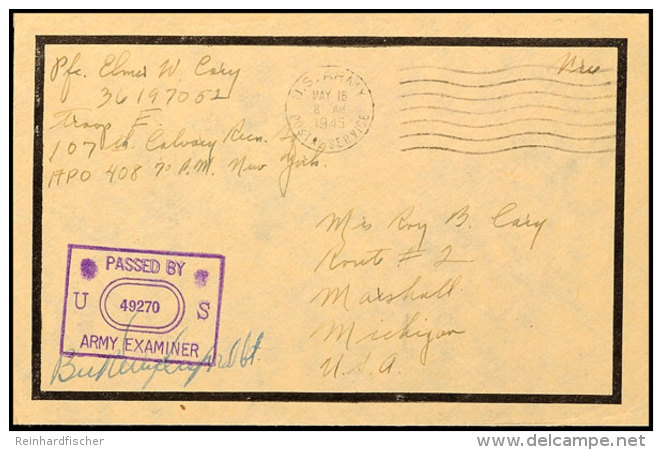 Pfc. Elmer W. Cary
36197052
Troop F.
107 th. Calvary Recn. Sq
APO 408 % P.M. New York.
U.S. ARMY
MAY 16
8 AM
1945
POSTAL SERVICE
Free
Mrs Roy B. Cary
Route # 2
Marshall
Michigan
U.S.A.
PASSED BY
U 49270 S
ARMY EXAMINER
Reinhardfischer
delcampe.net